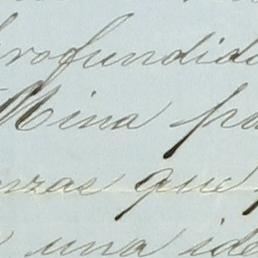 profundida
Mina pa
nzas que
una ide